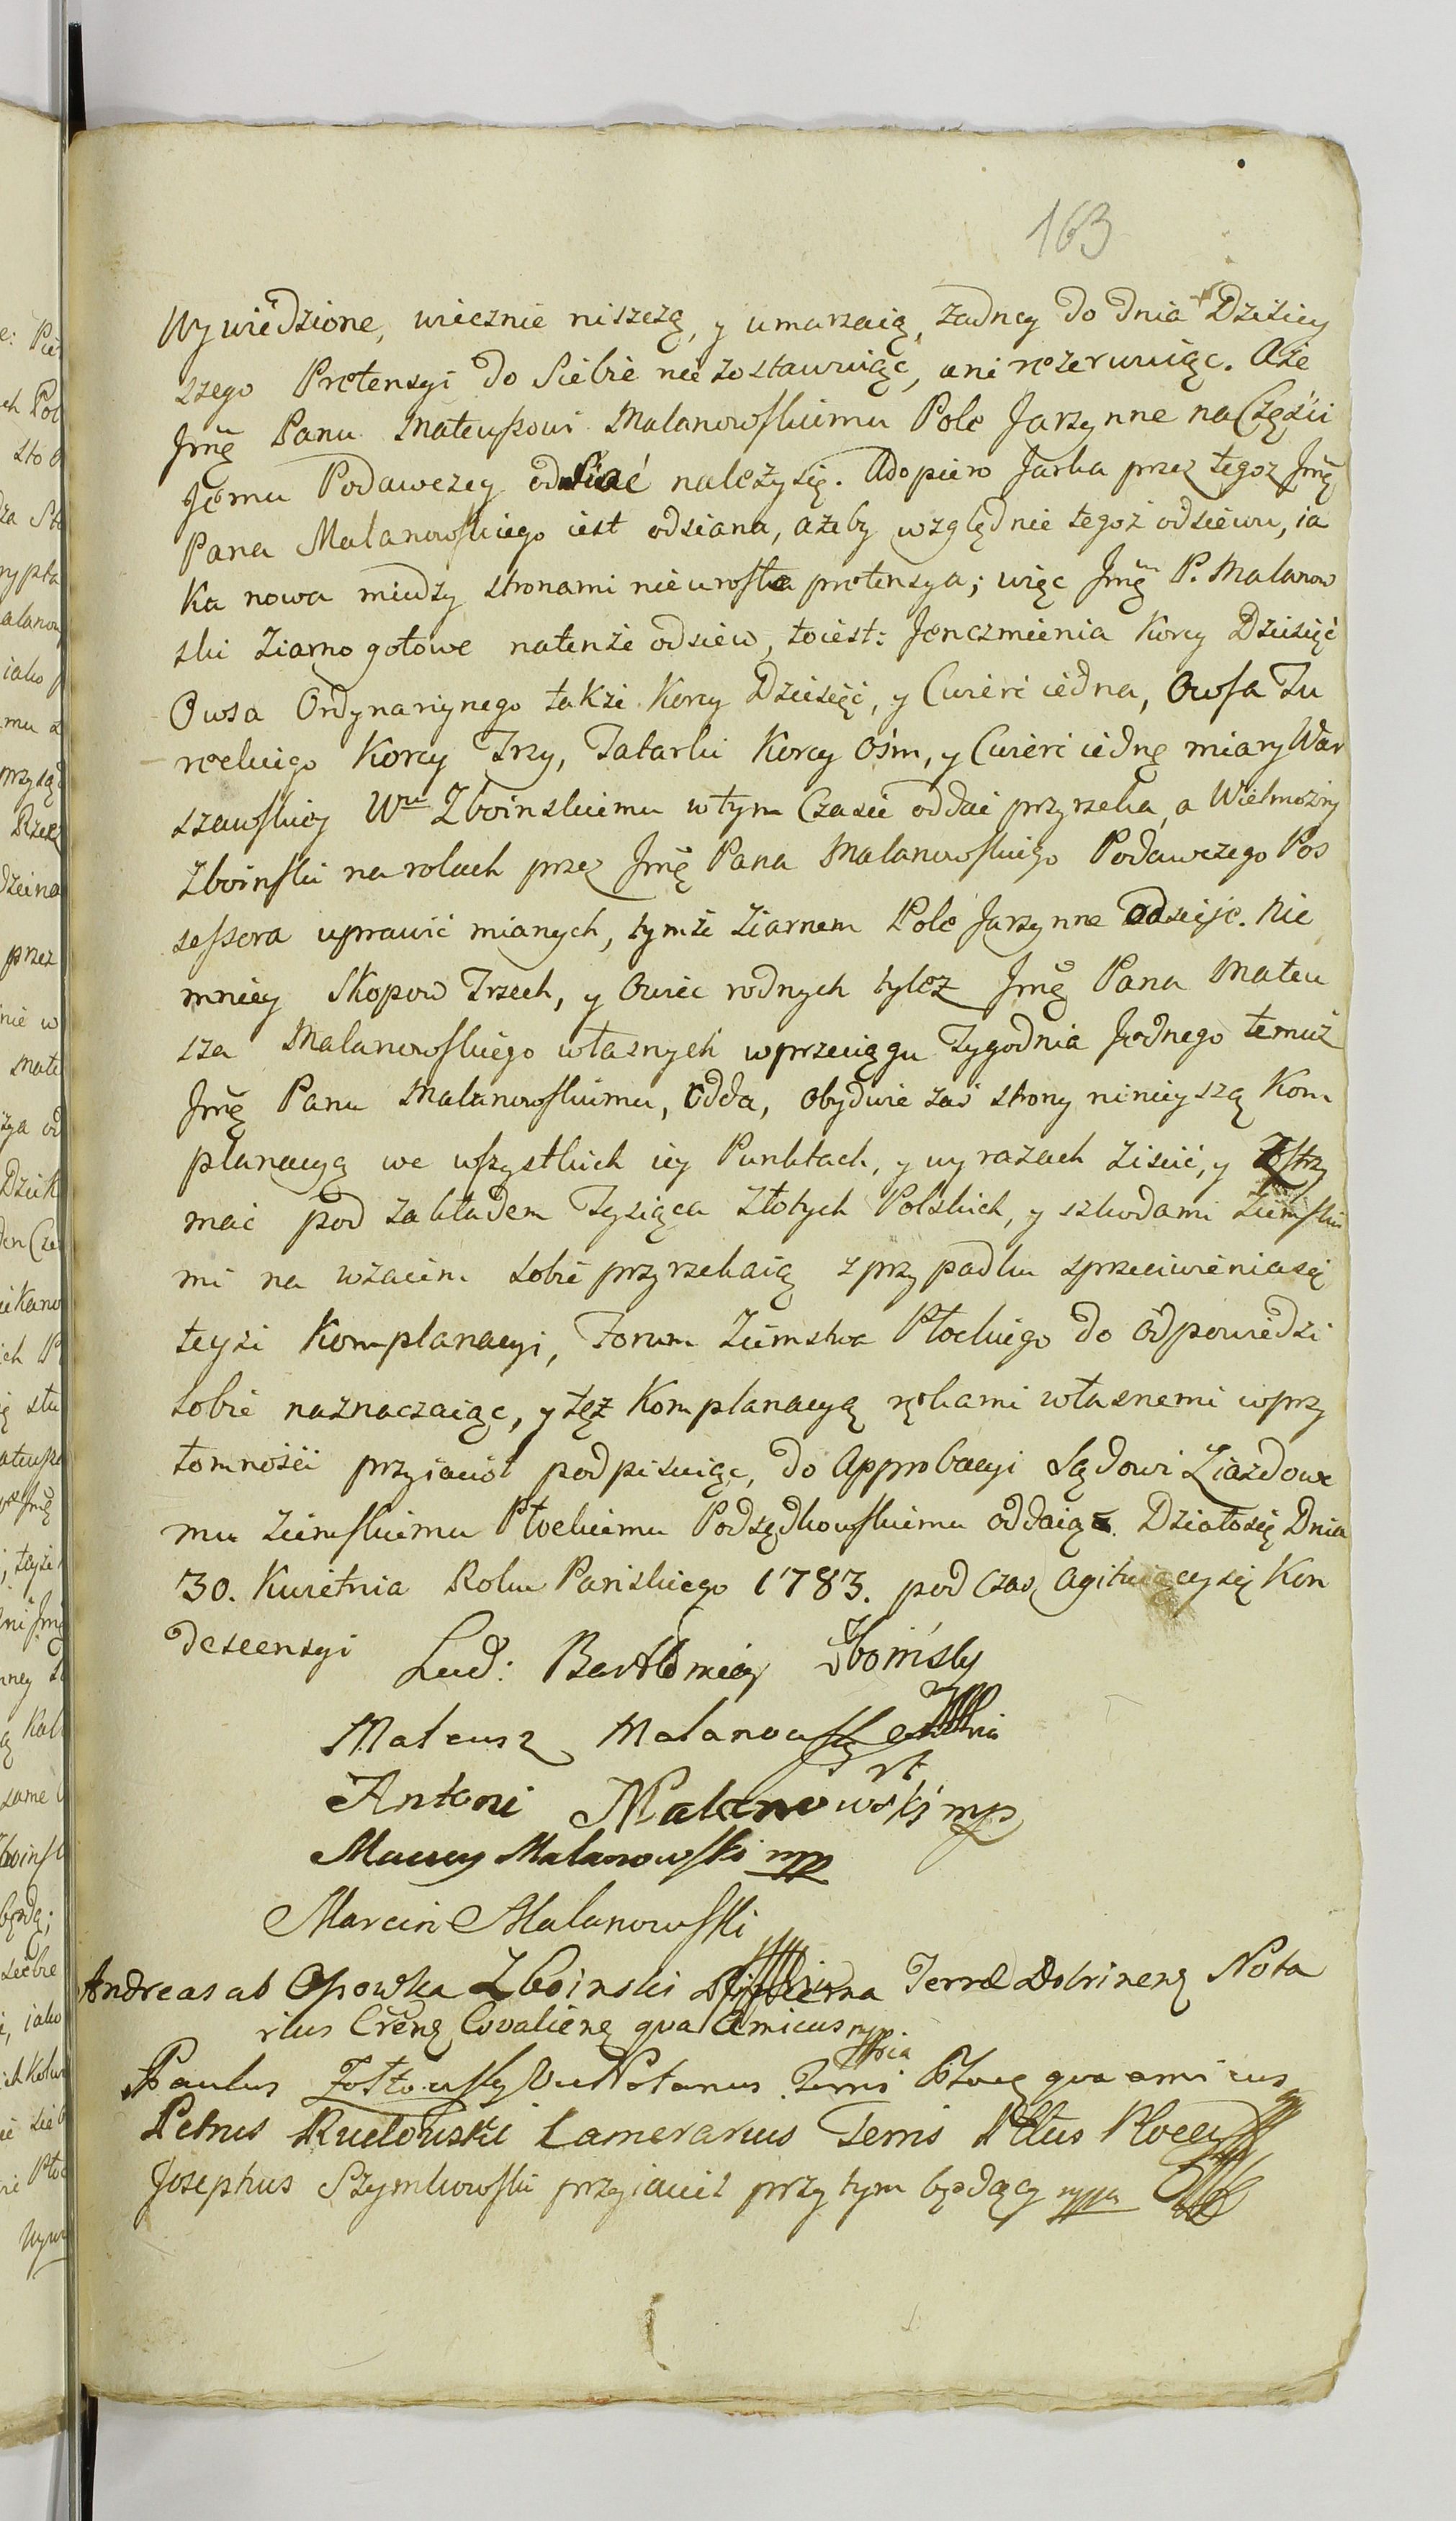 163
Wywiedzione, wiecznie niszczą, y umarzaią, żadney do dnia Dzisiey
szego Pretensyi do Siebie nie zostawuiąc, ani rezerwuiąc. Aże
Jmę Panu Mateuszowi Malanowskiemu Pole Jarzynne na Części
Jemu Podawczey odsiać należy się. Adopiero Jarka przez tegoz Jmę
Pana Malanowskiego iest odsiana, ażeby względnie tegoż odsiewu, ia
Ka nowa miedzy stronami nieurosła pretensya; więc Jmę P. Malanow
ski Ziarno gotowe natenże odsiew, toiest: Jenczmienia Korcy Dziesięć
Owsa Ordynaryinego także Korcy Dziesięć, y Cwierć iedna, Owsa Tu
reckiego Korcy Trzy, Tatarki Korcy Ośm, y Cwierć iednę miary War
szawskiey Wmu Zboinskiemu w tym Czasie oddać przyrzeka, a Wielmożny
Zboinski na rolach przez Jmę Pana Malanowskiego Podawczego Pos
sessora uprawić mianych, tymże Ziarnem Pole Jarzynne odsieje. Nie
mniey Skopow Trzech, y Owiec rodnych tylez Jmę Pana Mateu
sza Malanowskiego własnych w przeciągu Tygodnia Jednego temuż
Jmę Panu Malanowskiemu, odda, obydwie zaś strony ninieyszą Kom
planacyą we wszystkich iey Punktach, y wyrażach ziścić, y
mać pod zakładem Tysiąca Złotych Polskich, y szkodami Ziemski
mi na wzaiem sobie przyrzekaią z przypadku sprzeciwienia się
teyże Komplanacyi, Forum Ziemstwa Płockiego do odpowiedzi
sobie naznaczaiąc, y tęż Komplanacyą rękami własnemi w przy
tomności przyiacioł podpisuiąc, do Approbacyi Sądowi Ziazdowe
mu Ziemskiemu Płockiemu Podsędkowskiemu oddaią. Działo się Dnia
30. Kwietnia Roku Pańskiego 1783. pod czas agituiącey się Kon
descensyi
Lud: Bartłomiey Zboińsky
Mateusz Malanowsky
Antoni Malanowski mp
Maciey Malanowski mpp
Marcin Malanowski
Andreas ab Ossowka Zboinski Terræ Dobrinens Nota
rius qua Amicus mppia
Paulus Zołtowsky ViceNotarius Terris Płocens qua amicus
Petrus Rudowski Camerarius Terris Płocens
Josephus Szymkowski przyiaciel przy tym będący mppa